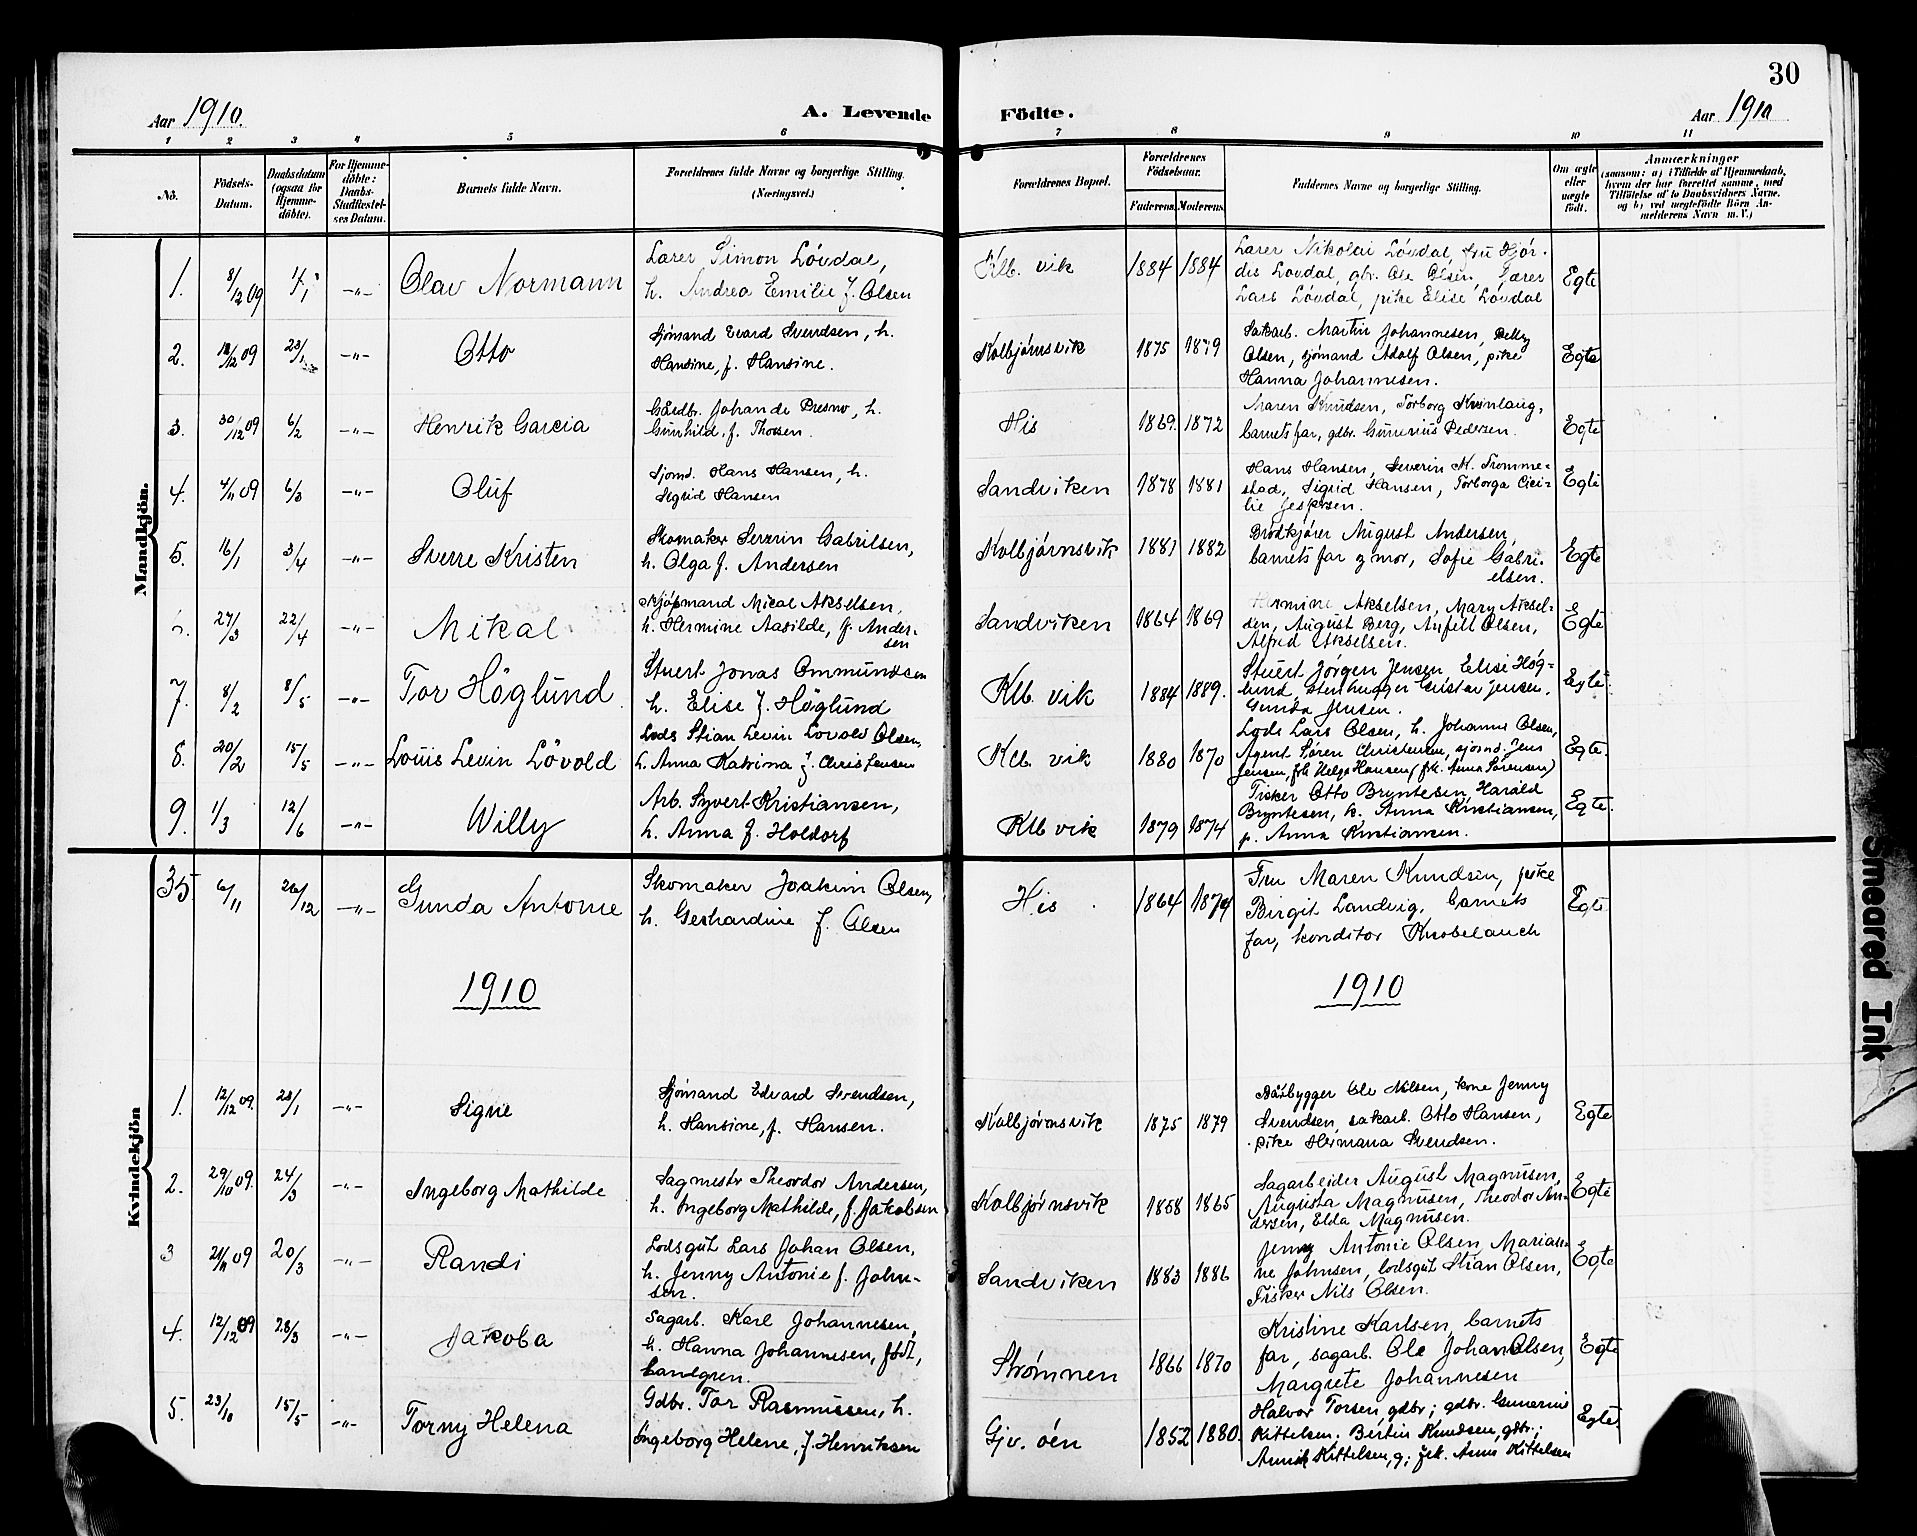 30
Aar 1910.
A. Levende Födte.
Aar 1910
1 2 3 4 5 6 7 8 9 10 11
No.
Födsels-Datum.
Daabsdatum (ogsaa for Hjemme-döbte).
For Hjemme-döbte: Daabs-Stadfæstel-ses Datum.
Barnets fulde Navn.
Forældrenes fulde Navne og borgerlige Stilling. (Næringsvei.)
Forældrenes Bopæl.
Forældrenes Födselsaar.
Faderens. Moderens.
Faddernes Navne og borgerlige Stilling.
Om ægte eller uægte födt.
Anmærkninger
(saasom: a) i Tilfælde af Hjemmedaab, hvem der har forrettet samme, med Tilföielse af to Daabsvidners Navne, og b) ved uægtefödte Börn An-melderens Navn m. V.)
Mandkjön.
1. 8/12 09 -"- Olav Normann
Lærer Simon Løvdal,
h. Andrea Emilie f. Olsen
Klb. vik 1884 1884
Lærer Nikolai Løvdal, fru Hjør-
dis Løvdal, gbr. Ole Olsen,
Lars Løvdal, pike Elise Løvdal
Egte
2. 18/12 09 23/1 -"- Otto
Sjømand Evard Svendsen, h.
Hansine, f. Hansine.
Kolbjørnsvik 1875 1879
Sakarb. Martin Johannesen,
Olsen, sjømand Adolf Olsen, pike
Hanna Johannesen.
Egte
3. 30/12 09 6/2 -"- Henrik Garcia
Gårdbr. Johan de Presno, h.
Gunhild, f. Thorsen.
His 1869. 1872
Maren Knudsen, Torborg
barnets far, gdbr. Gunerius Pedersen.
Egte
4. 4/11 09 6/3 -"- Oluf
Sjomd. Hans Hansen, h.
Sigrid Hansen
Sandviken 1878 1881
Hans Hansen, Severin M. Tromme-
stad, Sigrid Hansen, Torborga Cici-
lie Jespersen.
Egte
5. 16/1 3/4 -"- Sverre Kristen
Skomaker Severin Gabrilsen,
h. Olga f. Andersen
Kolbjørnsvik 1881 1882
Brødkjører August Andersen,
barnets far og mor, Sofie Gabri-
elsen.
Egte
27/3 22/4 -"- Mikal
Skjøpmand Mical Akselsen,
h. Hermine Aasilde, f. Ander-
sen
Sandviken 1864 1869
Hermine Akselsen, Mary Aksel-
sen, August Berg, Anfelt Olsen,
Alfred Akselsen.
Egte
7. 8/2 8/5 -"- Tor Höglund
Stuert Jonas Ommundsen
h. Elise f. Höglund
Klb. vik 1884 1889.
Stuert Jörgen Jensen, Elise Hög-
lund, stenhugger Jensen.
Gunda Jensen.
Egte.
8. 20/2 15/5 -"- Louis Levin Lövold
Lods Stian Levin Lövold Olsen,
h. Anna Katrina f. Christensen
Klb. vik 1880 1870
Lods Lars Olsen, h. Johanne Olsen,
Agent Søren Christensen, sjomd. Jens
Jensen, frk Helga Hansen (frk. Anna Sørensen)
Egte.
9. 1/3 12/6 -"- Willy
Arb. Syvert Kristiansen,
h. Anna f. Holdorf
Klb vik 1879 1874
Fisker Otto Bryntesen, Harald
Bryntesen, k. Anna Kristiansen,
p. Anna Kristiansen.
Egte.
Kvindekjön
35 6/11 26/12 -"- Gunda Antonie
Skomaker Joakim Olsen,
h. Gerhardine f. Olsen
His 1864 1874
Fru Maren Knudsen, pike
Birgit Landvig, barnets
far, konditor Knobelauch
Egte
1910 1910
1. 12/12 09. 23/1 -"- Signe
Sjömand Edvard Svendsen,
h. Hansine, f. Hansen.
Kolbjørnsvik 1875 1879
Baatbygger Ole Nilsen, kone Jenny
Svendsen, sakarb. Otto Hansen,
pike Hermana Svendsen.
Egte
2. 29/10 09. 24/3 -"- Ingeborg Mathilde
Sagmestr Theordor Andersen,
h. Ingeborg Mathilde, f. Jakobsen
Kolbjørnsvik 1858 1865
Sagarbeider August Magnusen,
Augusta Magnusen, Theodor An-
dersen, Elda Magnusen.
Egte
3 21/11 09 20/3 -"- Randi
Lodsgut Lars Johan Olsen,
h. Jenny Antonie f. John-
sen.
Sandviken 1883 1886
Jenny Antonie Olsen, Marian-
ne Johnsen, lodsgut Stian Olsen,
Fisker Nils Olsen.
Egte
4. 12/12 09 28/3 -"- Jakoba
Sagarb. Karl Johannesen,
h. Hanna Johannesen, født,
Landgren.
Strømmen 1866 1870
Kristine Karlsen, barnets
far, sagarb. Ole Johan Olsen,
Margrete Johannesen
Egte
5. 23/10 15/5 -"- Torny Helena
Gdbr. Tor Rasmussen, h.
Ingeborg Helene, f Henriksen
Gjv. øen 1852 1880.
Halvor Torsen, gdbr; gdbr. Gunerius
Kittelsen. Bertin Knudsen, gdbr;
Kittelsen, g; frk. Anna Kittelsen
Egte.
Smeared Ink